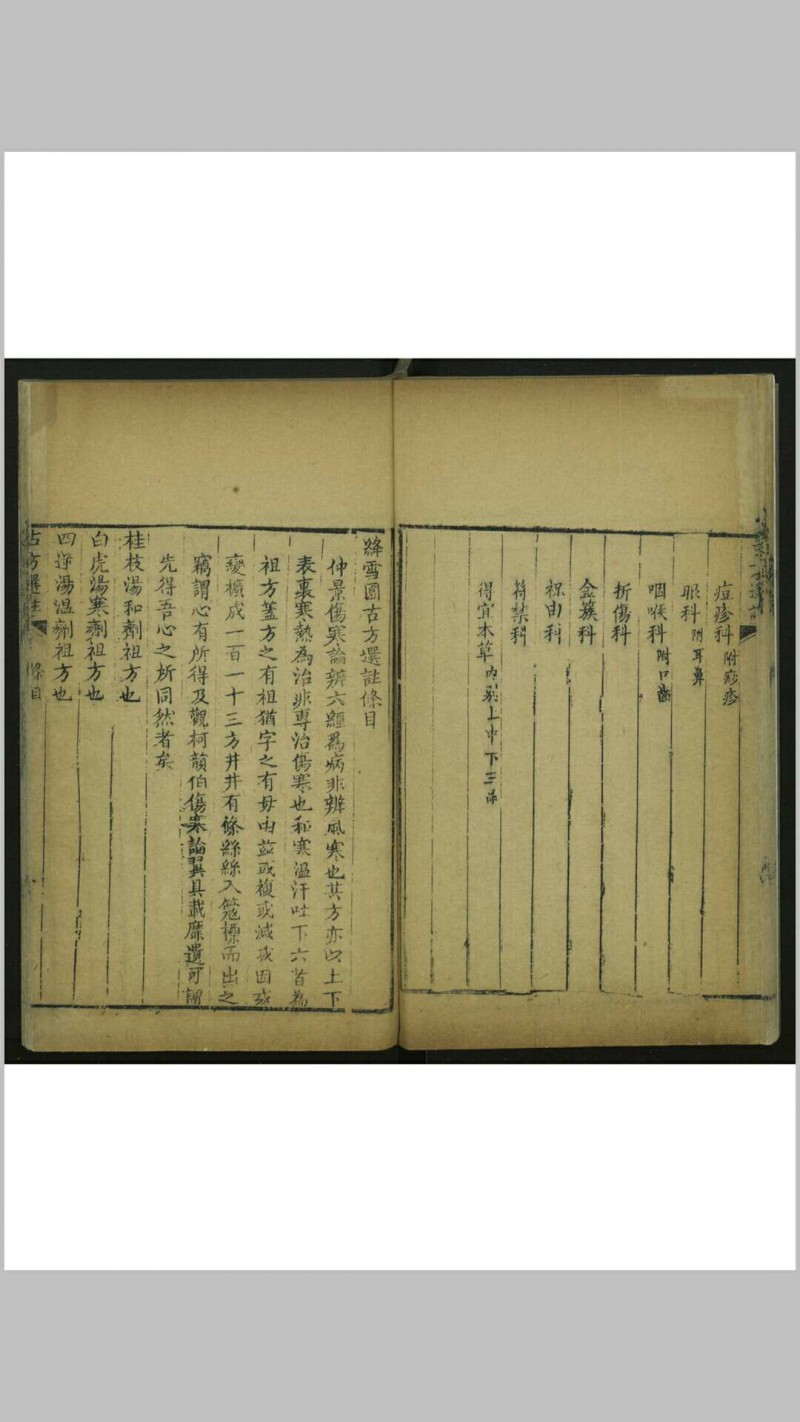 痘疹科附痧疹
眼科附耳鼻
咽喉科附口齒
折傷科
金簇科
祝由科
符禁科
得宜本草內分上中下三品
絳雪園古方選註條目
仲景傷寒論辨六經為病非辨風寒也其方亦以上下
表裏寒熱為治非專治傷寒也和寒温汗吐下六首為
祖方蓋方之有祖猶字之有母由兹或複或減或因或
變擴成一百一十三方井井有條絲絲入筬標而出之
竊謂心有所得及觀柯韻伯傷寒論翼具載靡遺可謂
先得吾心之所同然者矣
桂枝湯和劑祖方也
白虎湯寒劑祖方也
四逆湯温劑祖方也
古方選註 條目